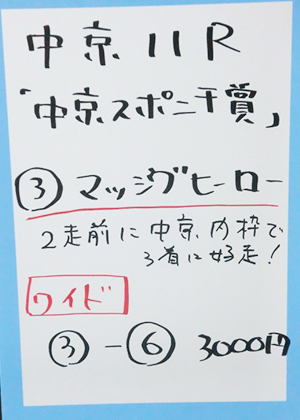 中京11R
「中京スポニチ賞」
③マッジヒーロー
2走前に中京内枠で
3着に好走!
ワイド
③-⑥ 3000円